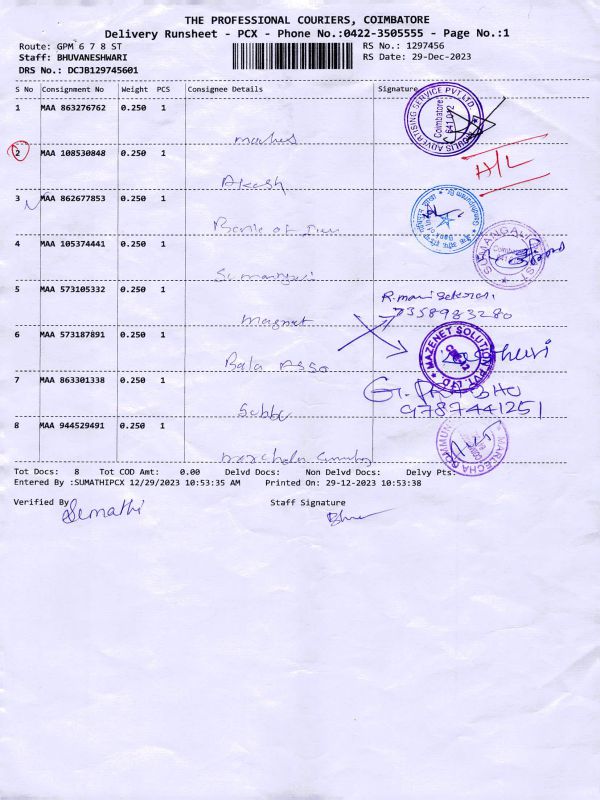 THE PROFESSIONAL COURIERS, COIMBATORE
Delivery Runsheet - PCX - Phone No.:0422-3505555 - Page No.:1
Route: GPM 6 7 8 ST
RS No.: 1297456
Staff: BHUVANESHWARI
RS Date: 29-Dec-2023
DRS No.: DCJB129745601
S No Consignment No Weight PCS Consignee Details Signature
1 MAA 863276762 0.250 1
ADVERTISING SERVICE PVT LTD
Coimbatore
641 012
2 MAA 108530848 0.250 1
A/L
Akash
3 MAA 862677853 0.250 1
Bank of
4 MAA 105374441 0.250 1
SUMANGALI
Coimbatore
5 MAA 573105332 0.250 1
7358983280
Magnet
6 MAA 573187891 0.250 1
MAZENET SOLUTION PVT. LTD.
Bala Asso
7 MAA 863301338 0.250 1
G. PRABHU
9787441251
8 MAA 944529491 0.250 1
Tot Docs: 8 Tot COD Amt: 0.00 Delvd Docs: Non Delvd Docs: Delvy Pts:
Entered By :SUMATHIPCX 12/29/2023 10:53:35 AM Printed On: 29-12-2023 10:53:38
Verified By Staff Signature
Sumathi